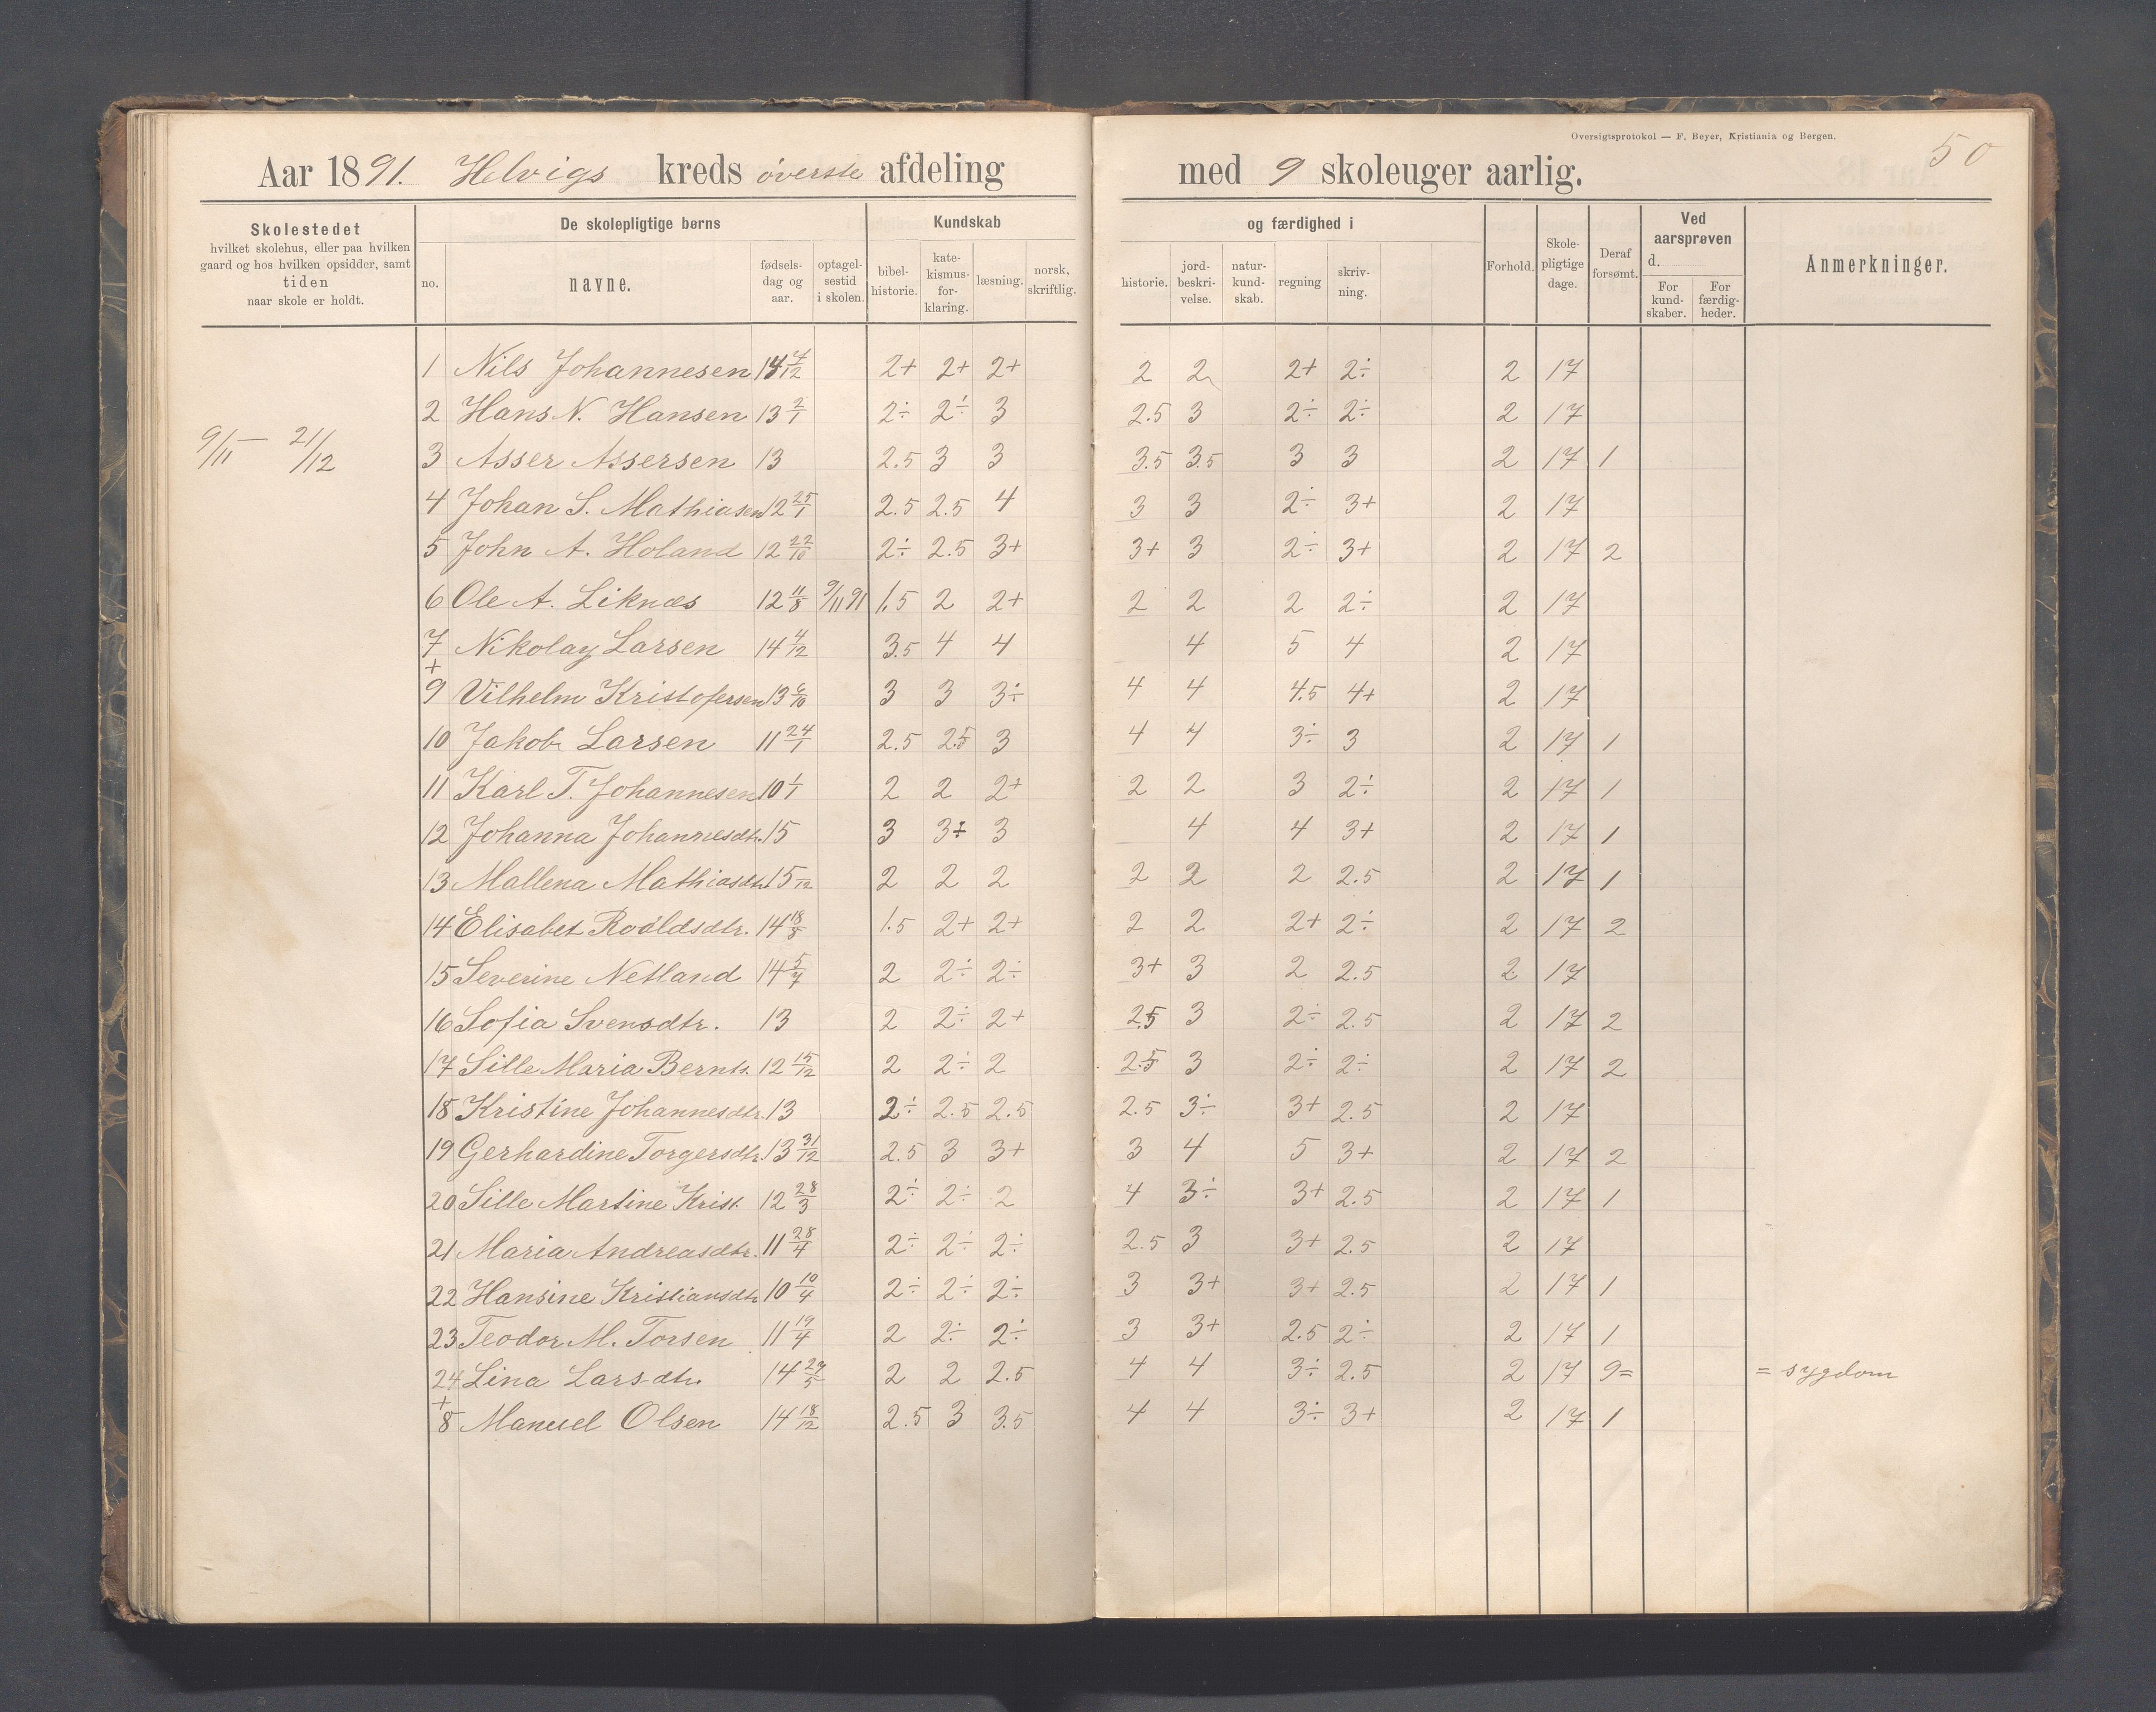 Oversigtsprotokol — F. Beyer, Kristiania og Bergen.
50
Aar 1891. Helvigs kreds øverste afdeling med 9 skoleuger aarlig.
Skolestedet
hvilket skolehus, eller paa hvilken
gaard og hos hvilken opsidder, samt
tiden
naar skole er holdt.
De skolepligtige børns
no.
navne.
fødsels-
dag og
aar.
optagel-
sestid
i skolen.
Kundskab
bibel-
historie.
kate-
kismus-
for-
klaring.
læsning.
norsk,
skriftlig.
og færdighed i
historie.
jord-
beskri-
velse.
natur-
kund-
skab.
regning
skriv-
ning.
Forhold.
Skole-
pligtige
dage.
Deraf
forsømt.
Ved
aarsprøven
d.
For
kund-
skaber.
For
færdig-
heder.
Anmerkninger.
9/11 — 21/12
1 Nils Johannesen 14 4/12 2+ 2+ 2+ 2 2 2+ 2÷ 2 17
2 Hans N. Hansen 13 2/1 2÷ 2÷ 3 2.5 3 2÷ 2÷ 2 17
3 Asser Assersen 13 2.5 3 3 3.5 3.5 3 3 2 17 1
4 Johan S. Mathiasen 12 25/1 2.5 2.5 4 3 3 2÷ 3+ 2 17
5 John A. Holand 12 22/10 2÷ 2.5 3+ 3+ 3 2÷ 3+ 2 17 2
6 Ole A. Liknæs 12 11/8 9/11 91 1.5 2 2+ 2 2 2 2÷ 2 17
7 Nikolay Larsen 14 4/12 3.5 4 4 4 5 4 2 17
+
9 Vilhelm Kristofersen 13 6/10 3 3 3÷ 4 4 4.5 4+ 2 17
10 Jakob Larsen 11 24/1 2.5 2.5 3 4 4 3÷ 3 2 17 1
11 Karl T. Johannesen 10 1/1 2 2 2+ 2 2 3 2÷ 2 17 1
12 Johanna Johannesdtr. 15 3 3÷ 3 4 4 3+ 2 17 1
13 Mallena Mathiasdtr. 15 /12 2 2 2 2 2 2 2.5 2 17 1
14 Elisabet Roaldsdtr. 14 18/8 1.5 2+ 2+ 2 2 2+ 2÷ 2 17 2
15 Severine Netland 14 5/7 2 2÷ 2÷ 3+ 3 2 2.5 2 17
16 Sofia Svensdtr. 13 2 2÷ 2+ 2.5 3 2÷ 2.5 2 17 2
17 Sille Maria Bernts. 12 15/12 2 2÷ 2 2.5 3 2÷ 2÷ 2 17 2
18 Kristine Johannesdtr. 13 2÷ 2.5 2.5 2.5 3÷ 3+ 2.5 2 17
19 Gerhardine Torgersdtr. 13 31/12 2.5 3 3+ 3 4 5 3+ 2 17 2
20 Sille Martine Krist. 12 28/3 2÷ 2÷ 2 4 3÷ 3+ 2.5 2 17 1
21 Maria Andreasdtr. 11 28/4 2÷ 2÷ 2÷ 2.5 3 3+ 2.5 2 17
22 Hansine Kristiansdtr 10 10/4 2÷ 2÷ 2÷ 3 3+ 3+ 2.5 2 17 1
23 Teodor M. Torsen 11 19/4 2 2÷ 2÷ 3 3+ 2.5 2÷ 2 17 1
24 Lina Larsdtr. 14 29/5 2 2 2.5 4 4 3÷ 2.5 2 17 9= = sygdom
+
8 Manuel Olsen 14 18/12 2.5 3 3.5 4 4 3÷ 3+ 2 17 1